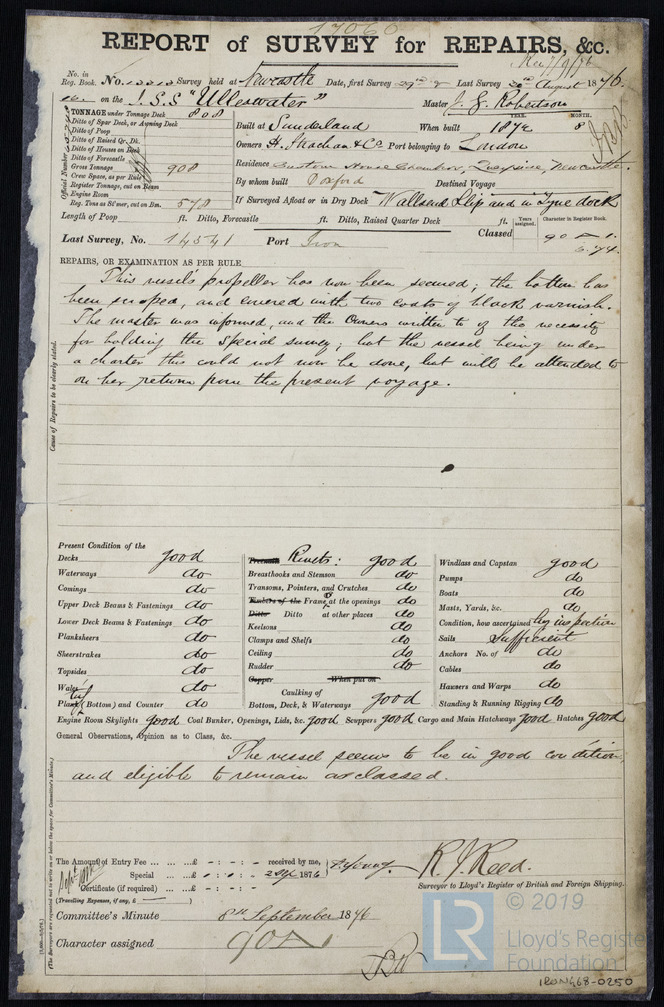 17060
REPORT of SURVEY for REPAIRS, &c.
No. in Reg. Book. No. Survey held at Newcastle Date, first Survey Last Survey August 1876.
on the S.S "Ulleswater" Master J. G. Robertson
TONNAGE under Tonnage Deck 808
Ditto of Spar Deck, or Awning Deck
Ditto of Poop
Ditto of Raised Qr. Dk.
Ditto of Houses on Deck
Ditto of Forecastle
Gross Tonnage 908
Crew Space, as per Rule
Register Tonnage, cut on Beam
Engine Room
Reg. Tons as St'mer, cut on Bm. 578
Official Number
Built at Sunderland When built YEAR. 1874 MONTH. 8
Owners H. Strachan & Co Port belonging to London
Residence Custom House Chambers, Quayside, Newcastle.
By whom built Doxford Destined Voyage
If Surveyed Afloat or in Dry Dock Wallsend Slip and in Tyne dock
Length of Poop ft. Ditto, Forecastle ft. Ditto, Raised Quarter Deck ft. Years assigned. Character in Register Book.
Last Survey, No. 14541 Port Iron Classed 90 A 1.
6.74.
REPAIRS, OR EXAMINATION AS PER RULE
This vessel's propeller has now been secured; the bottom has
been scraped, and covered with two coats of black varnish.
The master was informed, and the Owners written to of the necessity
for holding the Special survey; but the vessel being under
a charter this could not now be done, but will be attended to
on her return from the present voyage.
Cause of Repairs to be clearly stated.
Present Condition of the
Decks good
Waterways do
Comings do
Upper Deck Beams & Fastenings do
Lower Deck Beams & Fastenings do
Planksheers do
Sheerstrakes do
Topsides do
Wales do
Plang (Bottom) and Counter do
Treenails Rivets: good
Breasthooks and Stemson do
Transoms, Pointers, and Crutches do
Timbers of the Frame at the openings do
Ditto Ditto at other places do
Keelsons do
Clamps and Shelfs do
Ceiling do
Rudder do
Copper When put on
Caulking of
Bottom, Deck, & Waterways good
Windlass and Capstan good
Pumps do
Boats do
Masts, Yards, &c. do
Condition, how ascertained by inspection
Sails sufficient
Anchors No. of do
Cables do
Hawsers and Warps do
Standing & Running Rigging do
Engine Room Skylights good Coal Bunker, Openings, Lids, &c. good Scuppers good Cargo and Main Hatchways good Hatches good
General Observations, Opinion as to Class, &c.
The vessel seems to be in good condition,
and eligible to remain as classed.
The Amount of Entry Fee £ - : - : - received by me,
Special £ : : 2 Sep 1876
Certificate (if required) - : - : -
(Travelling Expenses, if any, £ )
R. J. Reed.
Surveyor to Lloyd's Register of British and Foreign Shipping.
Committee's Minute 8th September 1876
Character assigned 90 A
(The Surveyors are requested not to write on or below the space for Committee's Minute.)
LR
© 2019
Lloyd's Register
Foundation
IRON468-0250